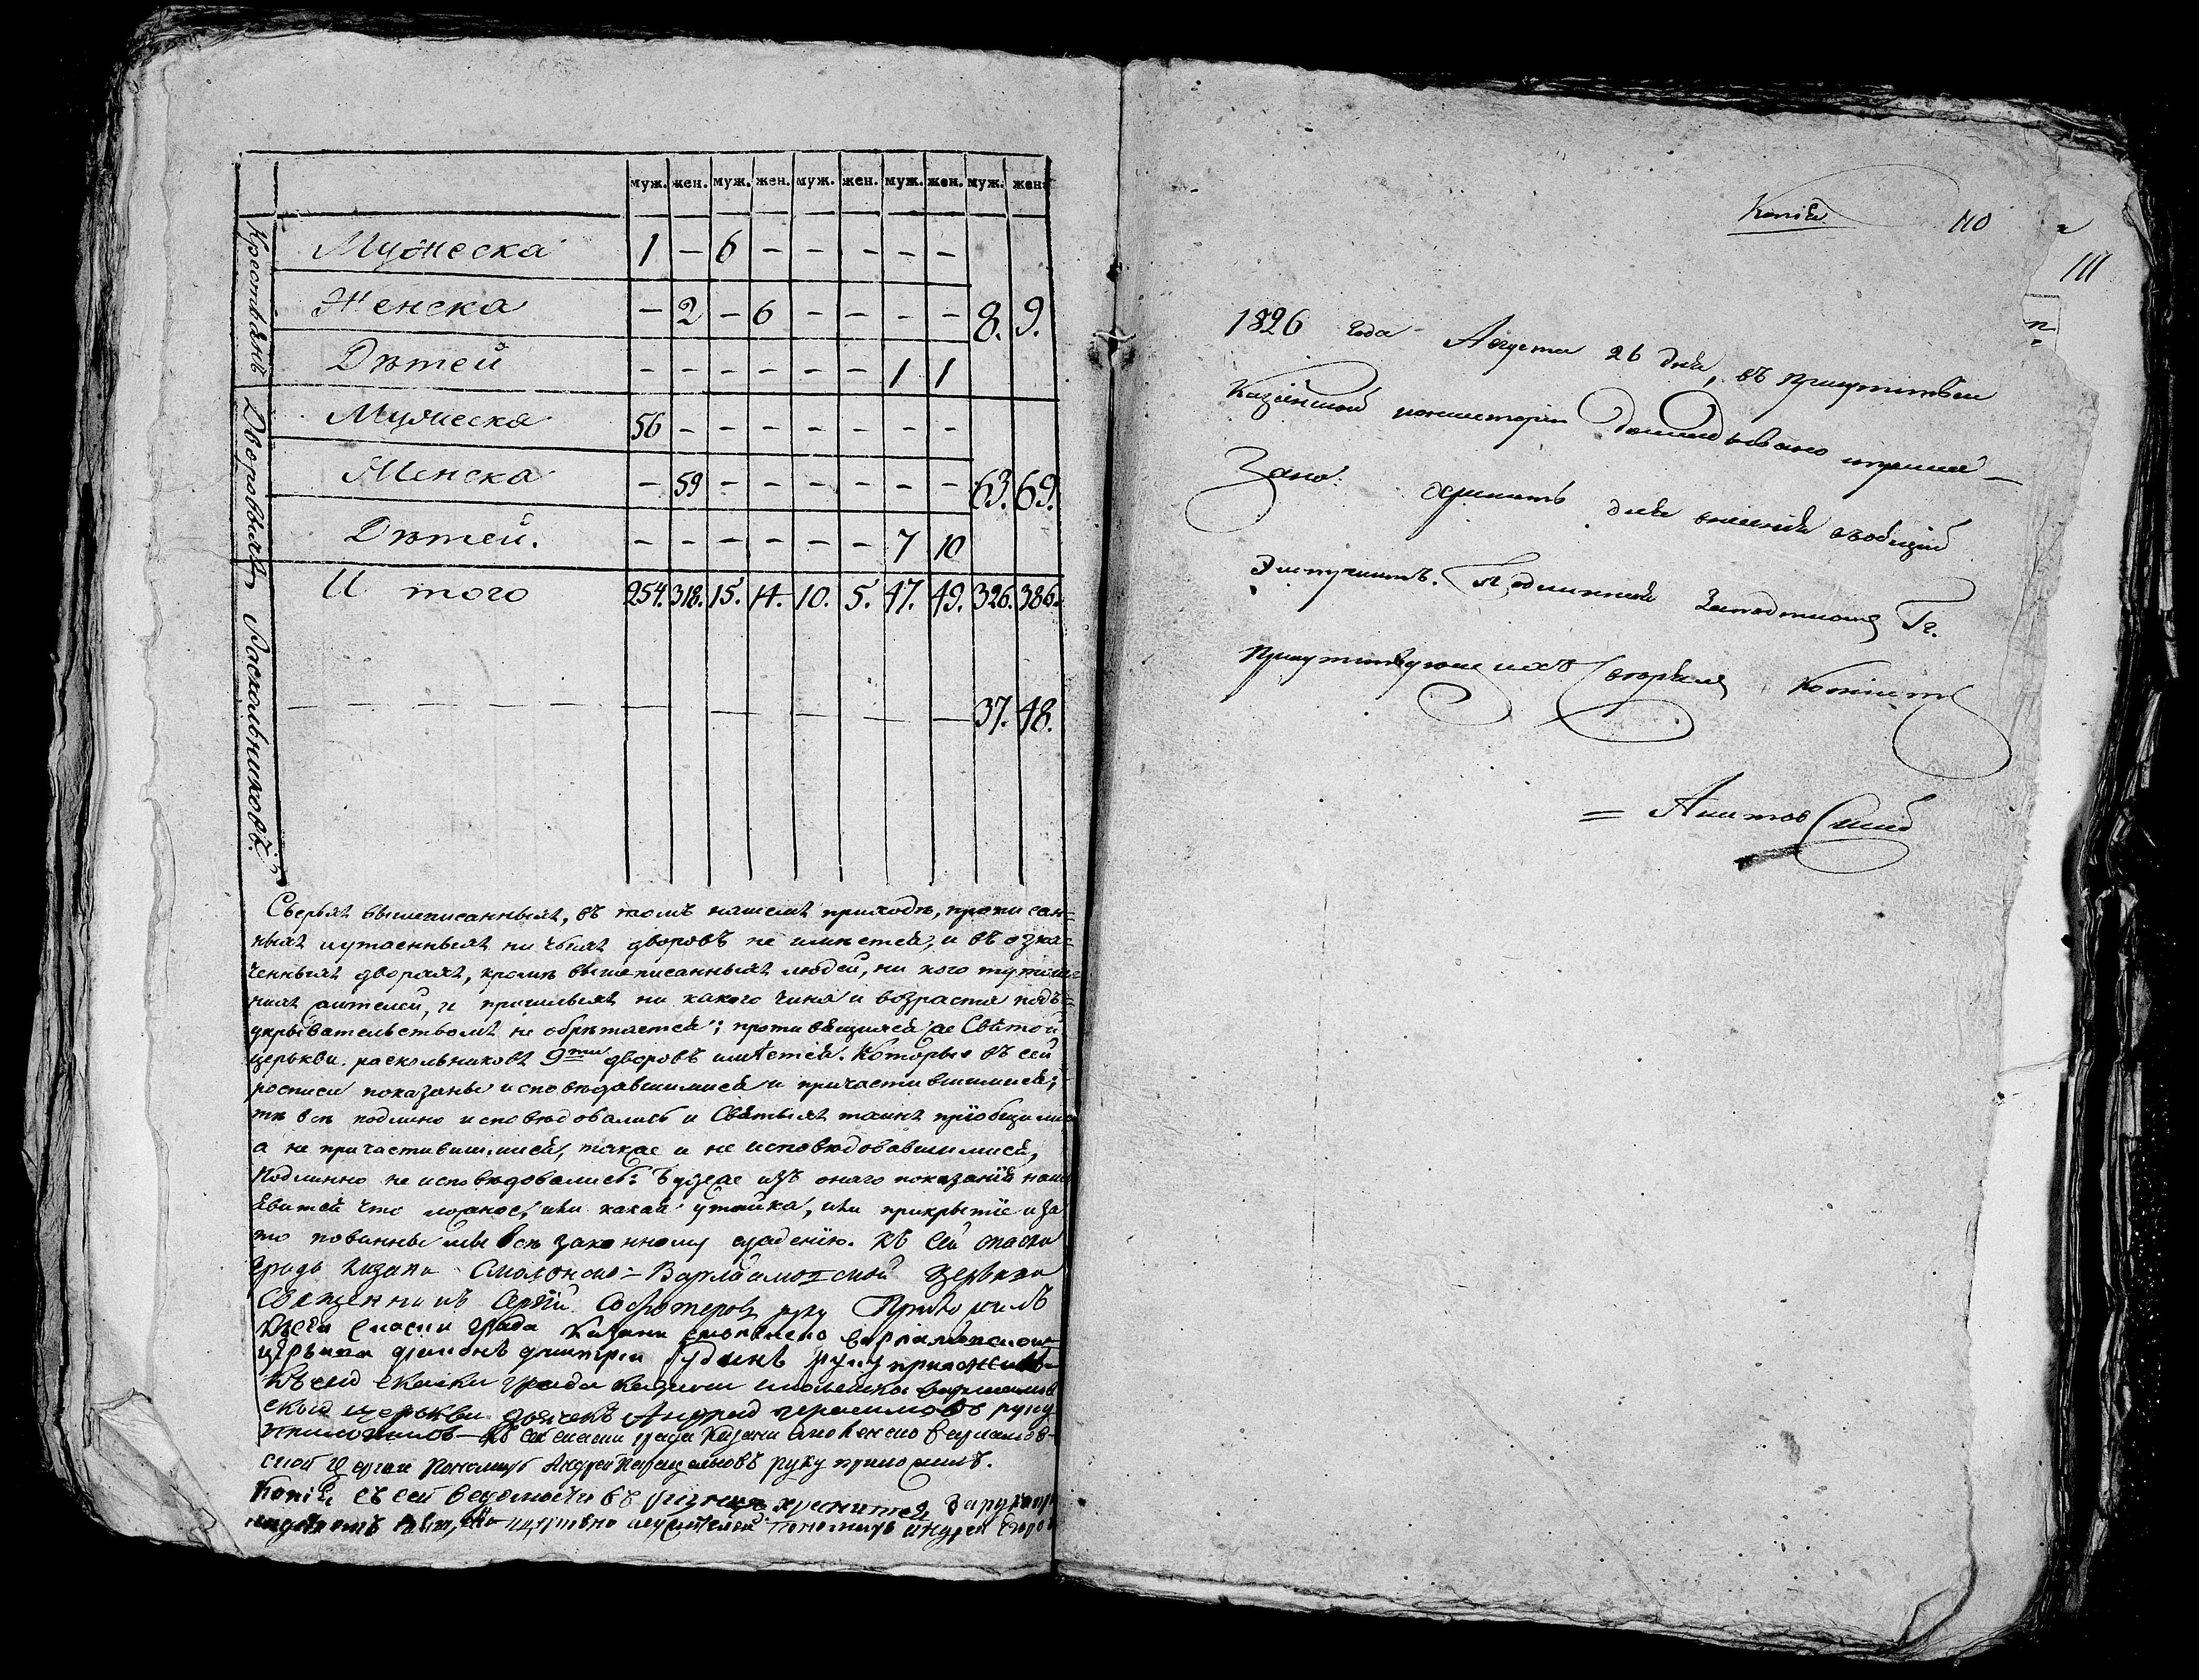 муж. жен. муж. жен. муж. жен. муж. жен. муж. жен.
Крестьянъ
Мужеска 1 — 6 — — — — —
Женска — 2 — 6 — — — — 8. 9.
Дѣтей — — — — — — 1 1
Дворовыхъ
Мужеска 56 — — — — — — —
Женска — 59 — — — — — — 63. 69.
Дѣтей. — — — — — — 7 10
И того 254. 318. 15. 14. 10. 5. 47. 49. 326. 386.
Раскольниковъ.
— — — — — — — — 37. 48.
Сверьхъ вышеписанныхъ, въ томъ нашемъ приходѣ, прописан=
ныхъ и утаенныхъ ни чьихъ дворовъ не имѣется, и въ озна=
ченныхъ дворахъ, кромѣ вышеписанныхъ людей, ни кого
жителей, и пришлыхъ ни какого чина и возраста подъ=
укрывательствомъ не обрѣтается; противящихся же Святой
церькви раскольниковъ 9ти дворовъ имѣется. Которые въ сей
росписи показаны исповѣдавшимися и причастившимися;
тѣ всѣ подлино исповѣдовались и Святыхъ таинъ приобщились
а не причастившимися, также и не исповѣдовавшимися,
подлинно не исповѣдовались: Буде же изъ онаго показанія
явится что ложное, или какая утайка, или прикрытіе и за
то повинны мы всѣ законному суждению. Къ сей скаски
града Казани Смоленско=Варлаамовской Церькви
Священникъ Сергiй руку Приложилъ
Къ сей скаски града Казани смоленско варламовской
церькви дьяконъ руку приложилъ
Къ сей скаски града Казани смоленско варламов
ской церькви дьячекъ Андрей Герасимовъ руку
приложилъ — Къ сей скаски града Казани Смоленско Варламов-
ской Церкви Пономарь Андрей руку приложилъ.
Копія съ сей ведомости въ ризницѣ хранится
пономарь Андрей
Копія
110
111
1826 года Августа 26 дня, въ присутствіи
Казанской консисторіи
Зано: хранить для внесенія въ общій
Экстрактъ. Подлинной Гг.
Присутствующихъ
=